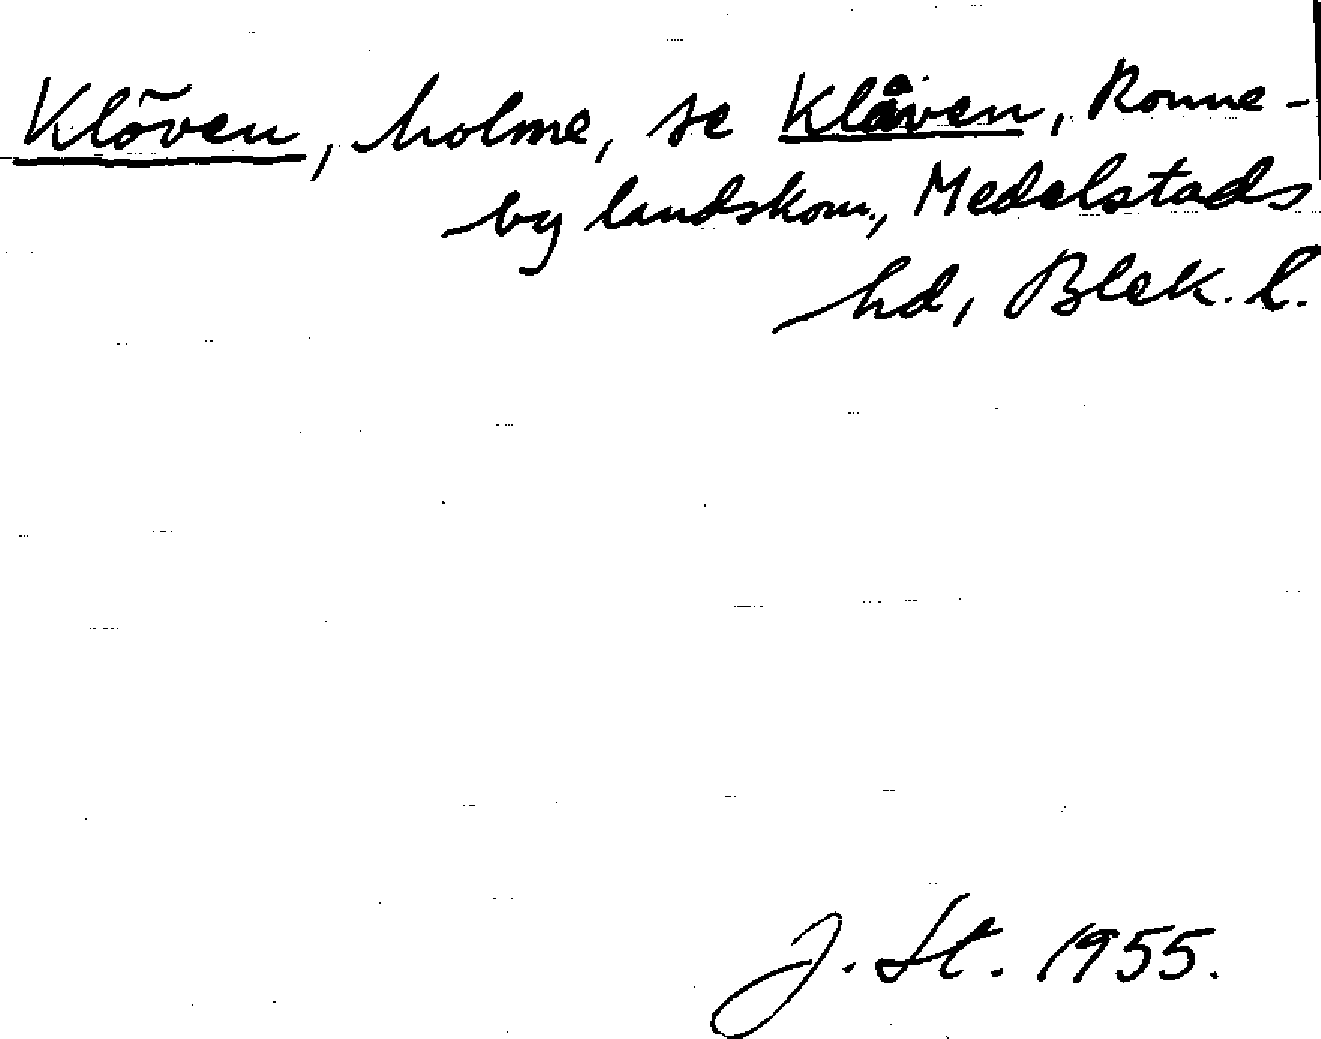 Klöven, holme, se Klåven, Ronne-
by landskom., Medelstads
hd, Blek. l.
J. St. 1955.